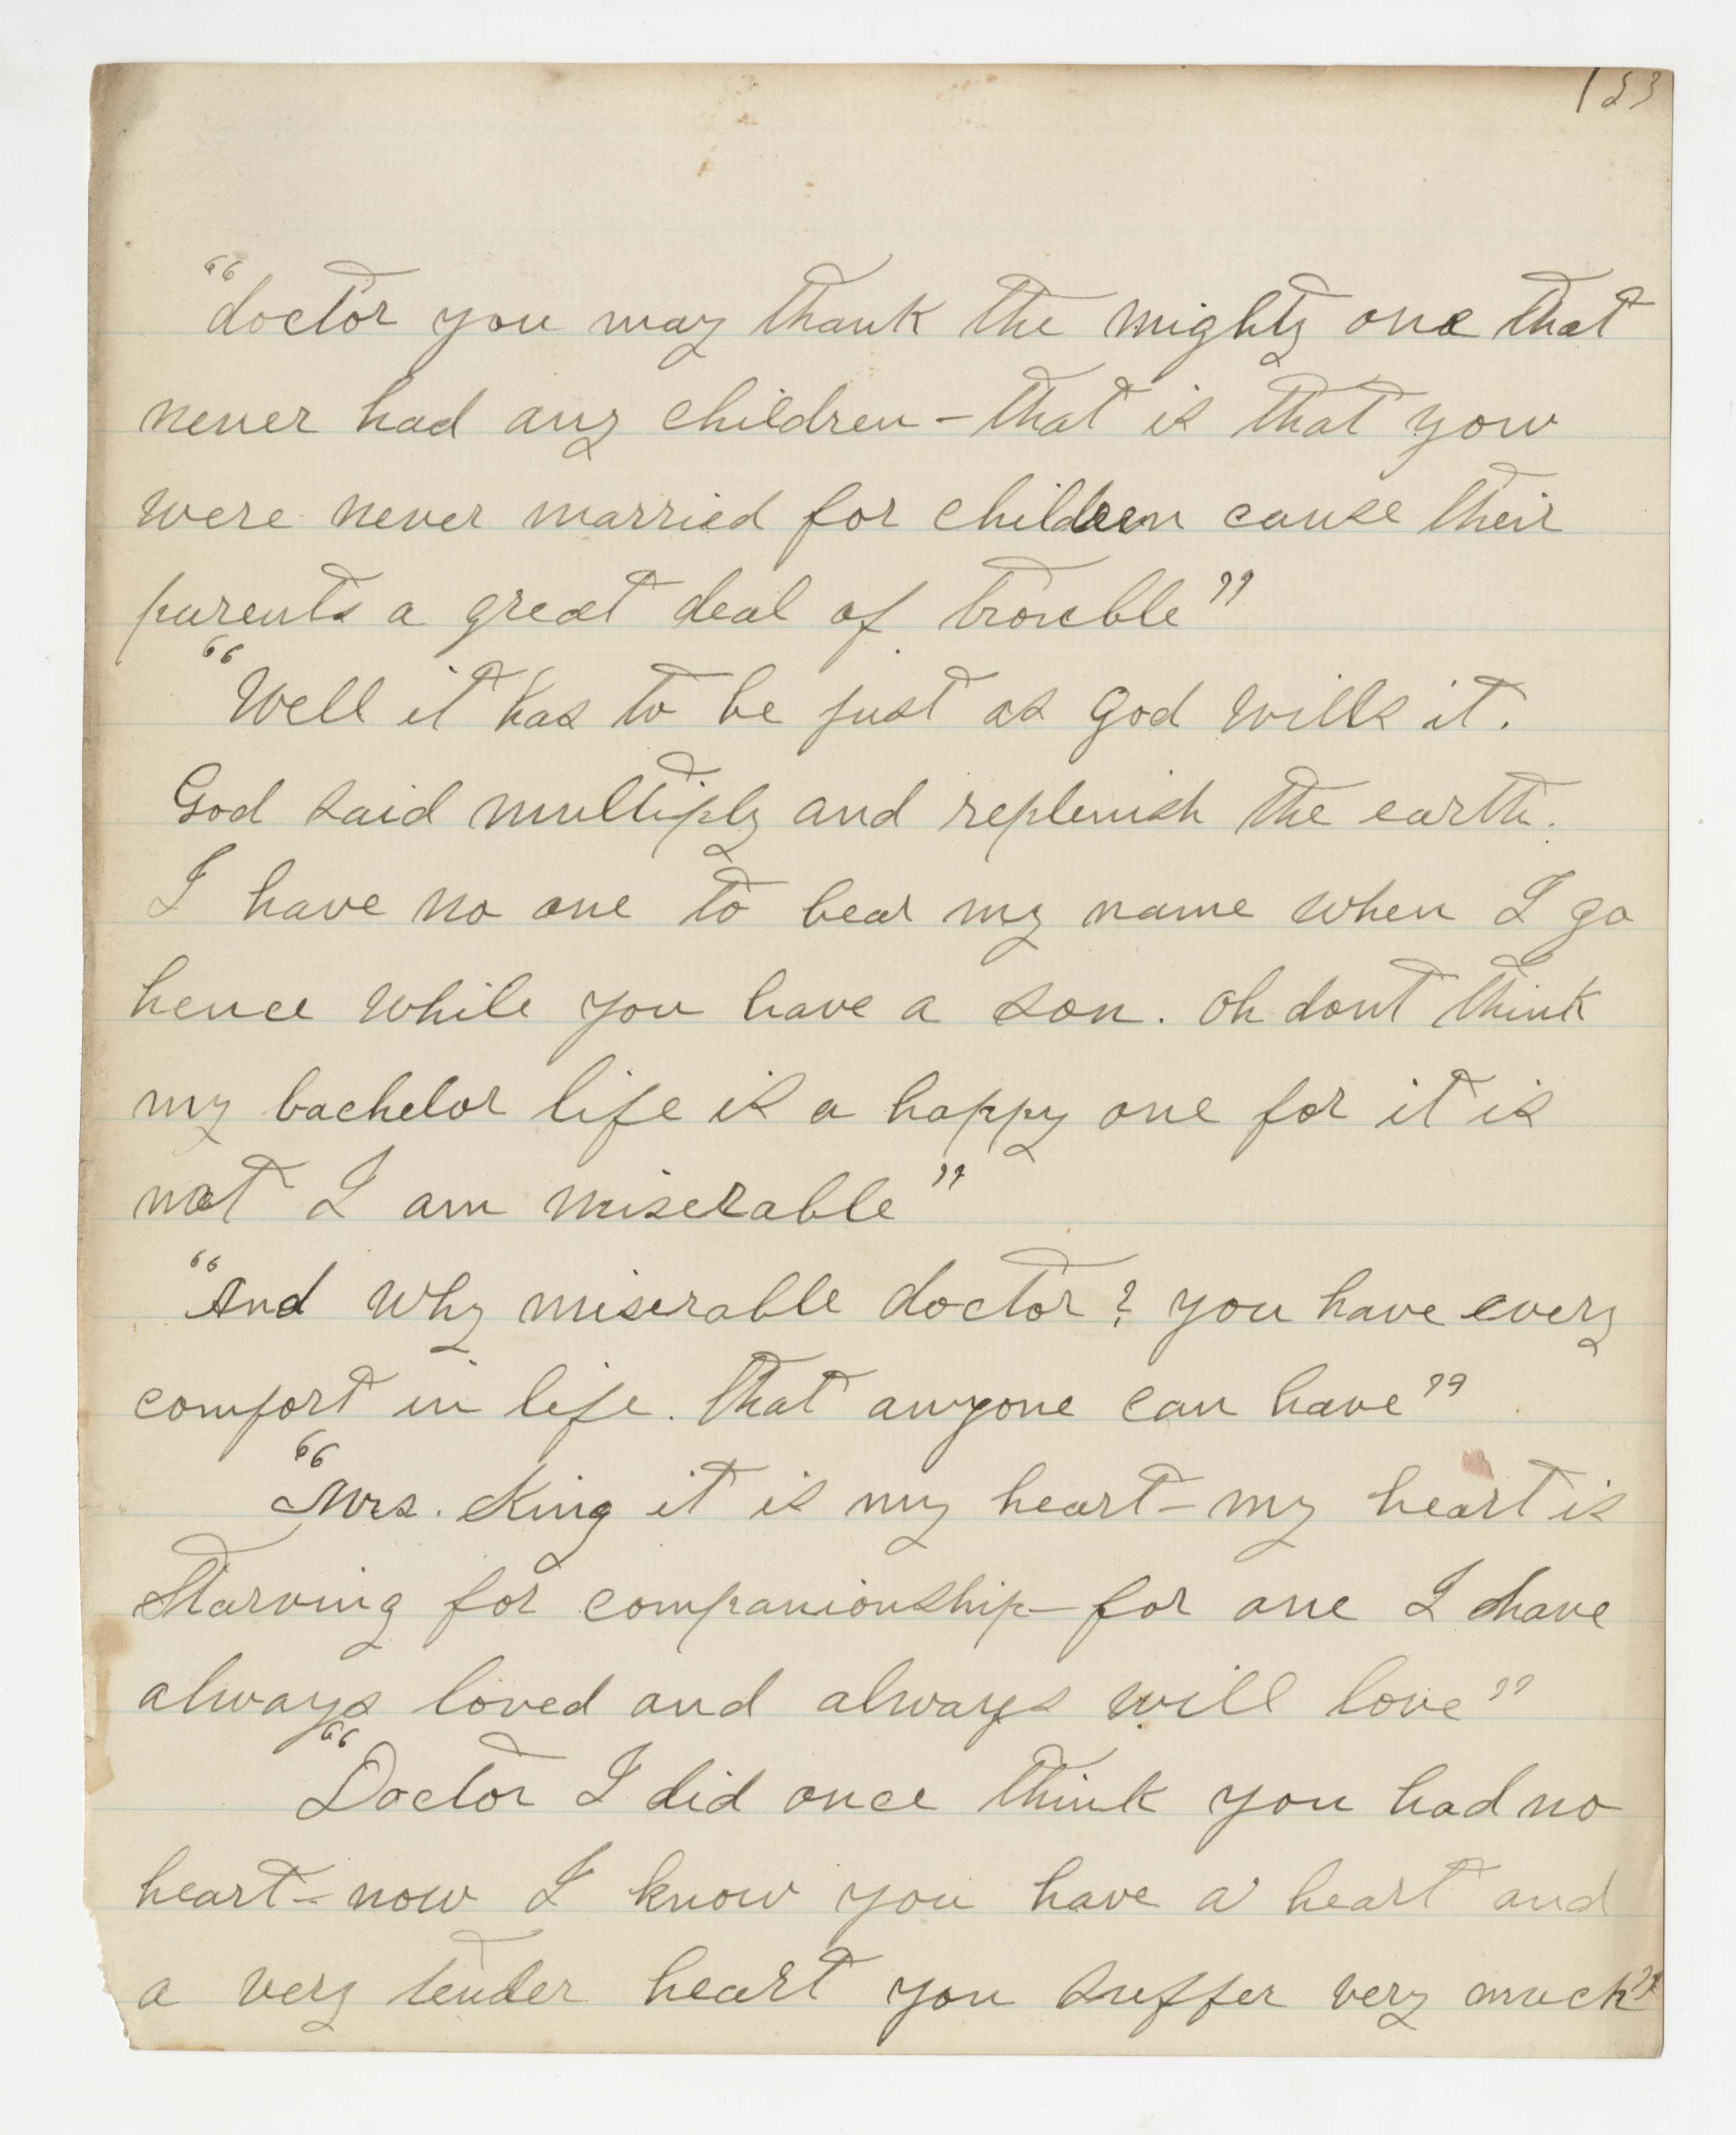 153
"doctor you may thank the mighty one that
never had any children - that is that you
were never married for children cause their
parents a great deal of trouble"
"Well it has to be just as God wills it.
God said multiply and replenish the earth.
I have no one to bear my name when I go
hence while you have a son. Oh dont think
my bachelor life is a happy one for it is
not I am miserable"
"And why miserable doctor? you have every
comfort in life. that anyone can have"
"Mrs. King it is my heart - my heart is
starving for companionship - for one I have
always loved and always will love"
"Doctor I did once think you had no
heart - now I know you have a heart and
a very tender heart you suffer very much"